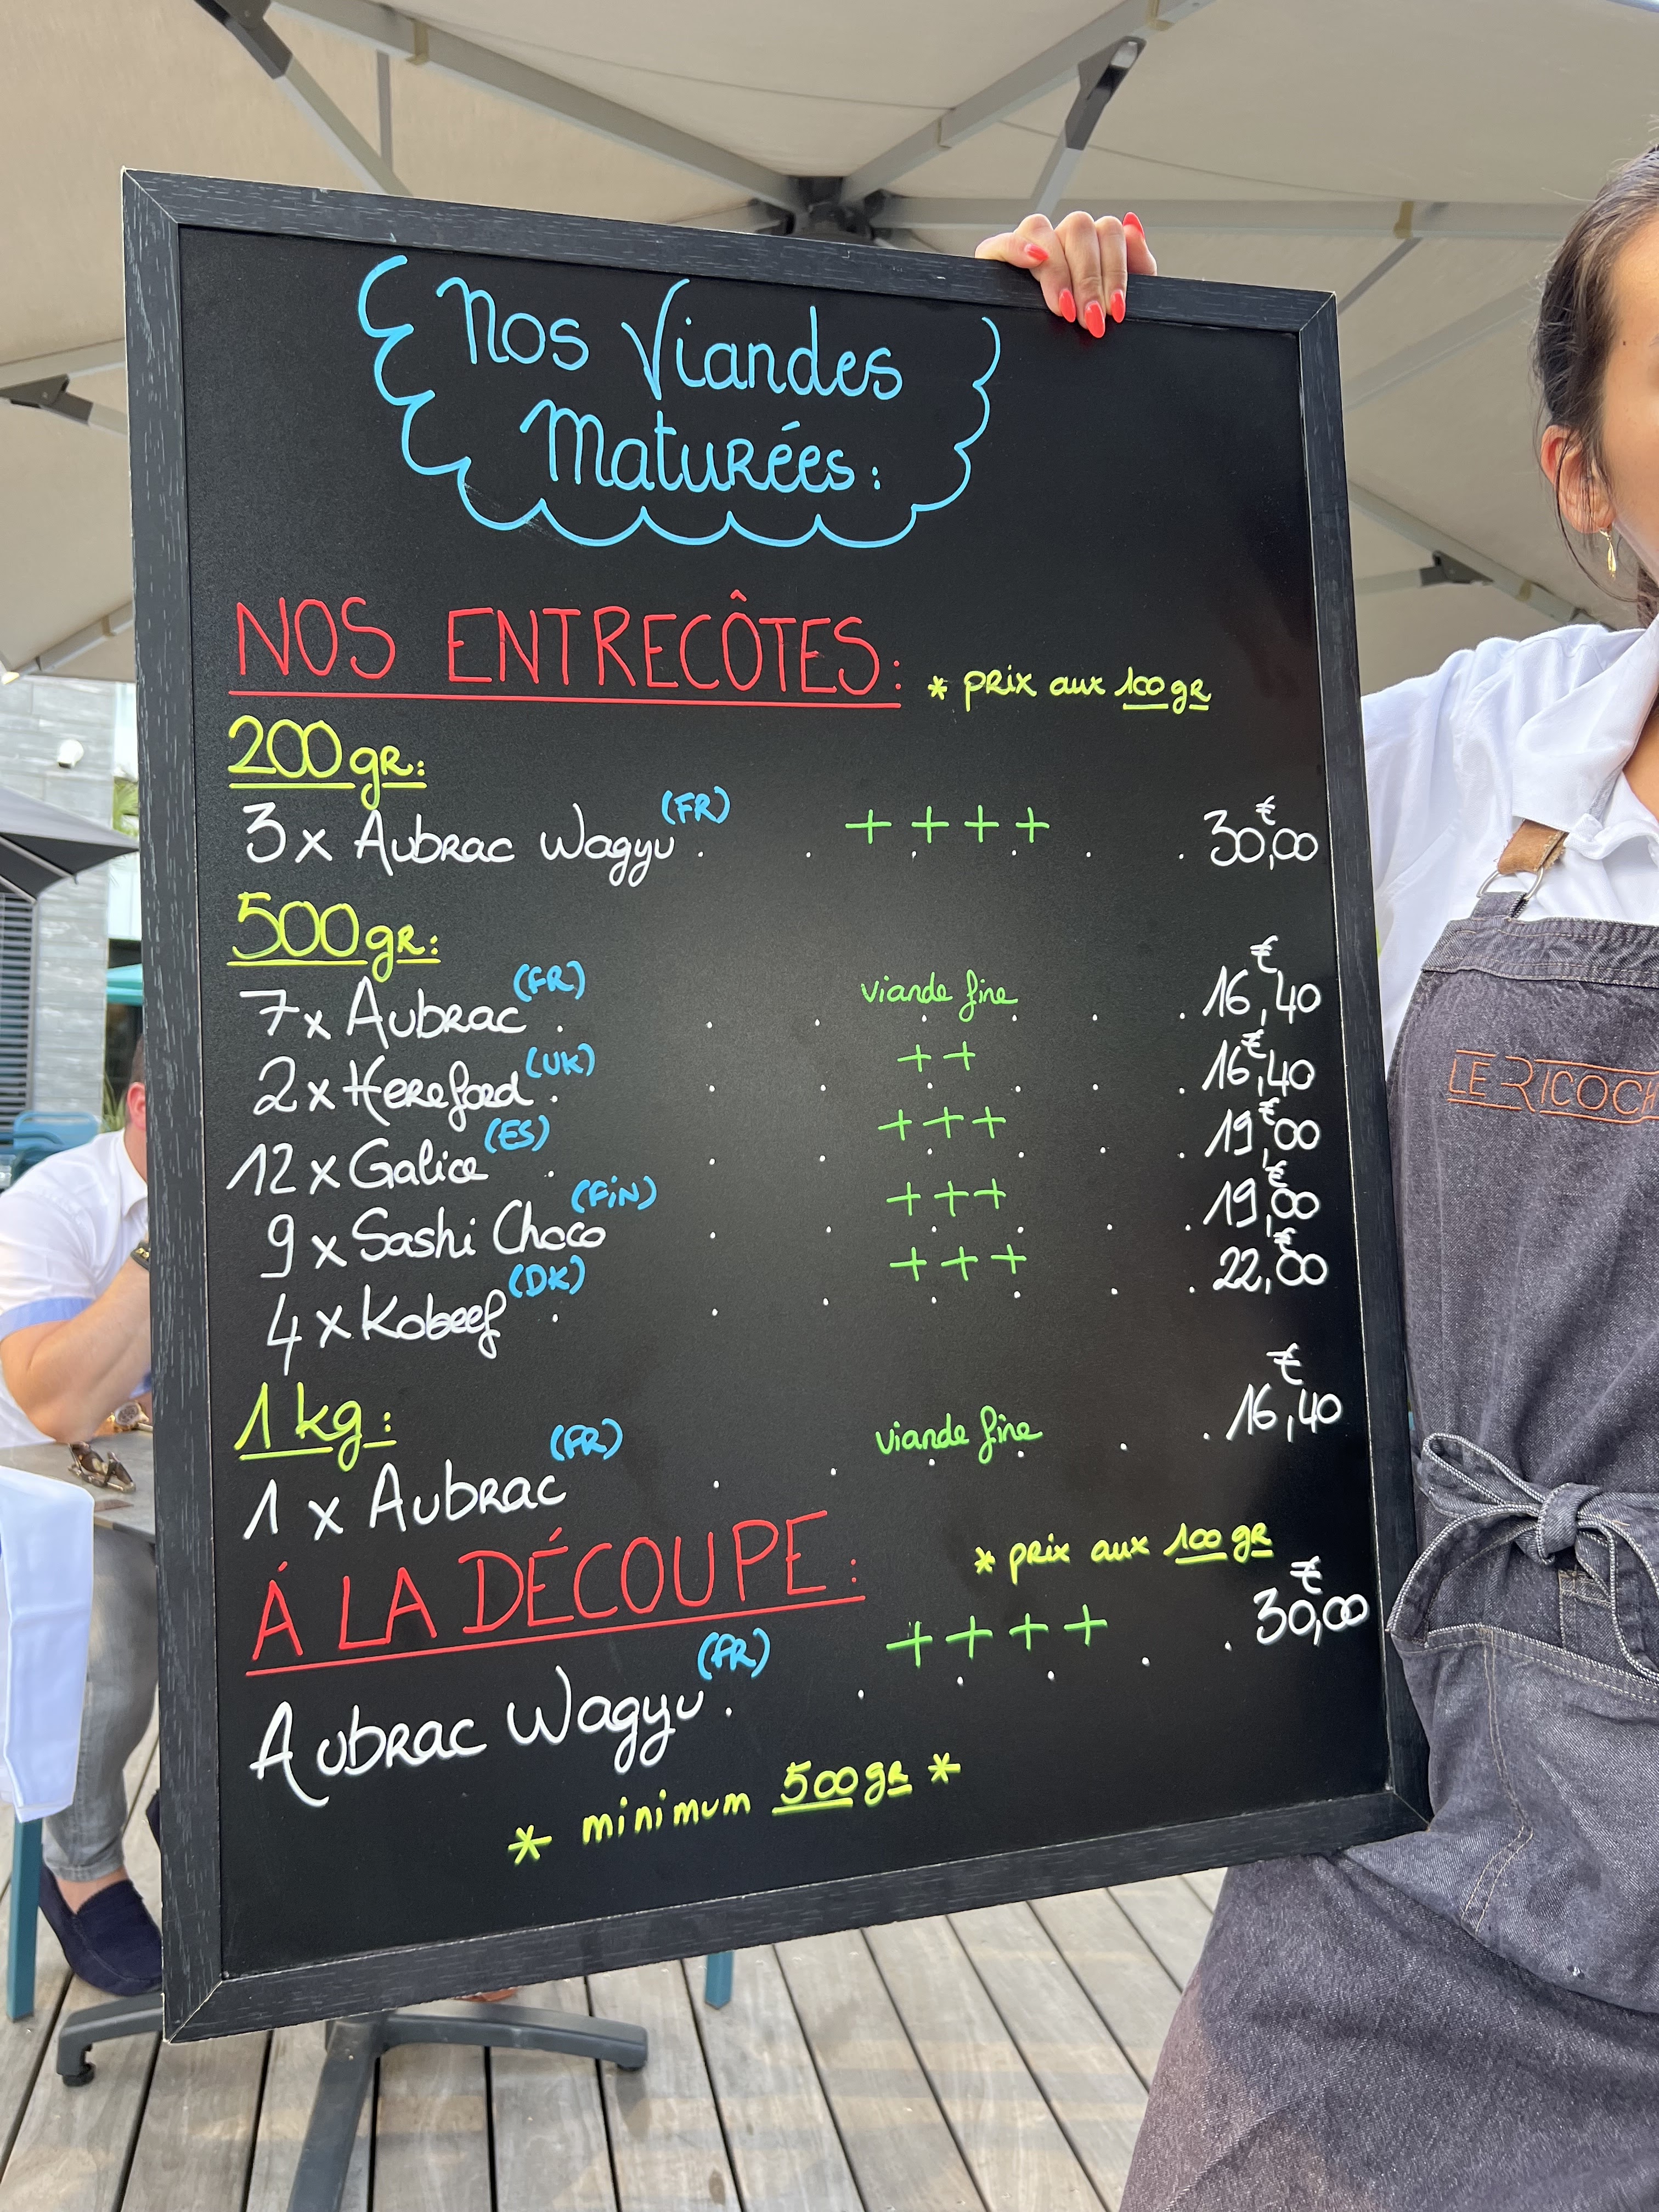 Nos Viandes
Maturées:
NOS ENTRECÔTES: * prix aux 100gr
200gr:
3x Aubrac Wagyu (FR) . . . . . . ++++ 30,00€
500gr:
7x Aubrac (FR) . . . viande fine . . . . 16,40€
2x Hereford (UK) . . . ++ . . . . 16,40€
12x Galice (ES) . . . +++ . . . . 19,00€
9x Sashi Choco (FiN) . . +++ . . . . 19,00€
4x Kobeef (DK) . . . +++ . . . . 22,00€
1kg:
1x Aubrac (FR) . . viande fine . . . . 16,40€
Á LA DÉCOUPE: * prix aux 100gr
Aubrac Wagyu (FR) . . ++++ . . . . 30,00€
* minimum 500gr *
LE RICOCH